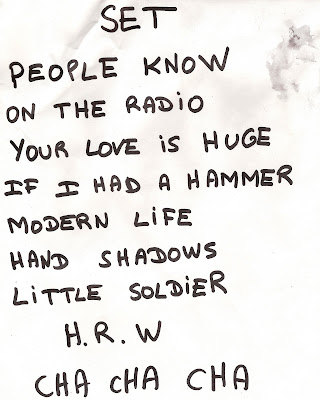 SET
PEOPLE KNOW
ON THE RADIO
YOUR LOVE iS HUGE
IF I HAD A HAMMER
MODERN LiFE
HAND SHADOWS
LiTTLE SOLDiER
H.R.W
CHA CHA CHA